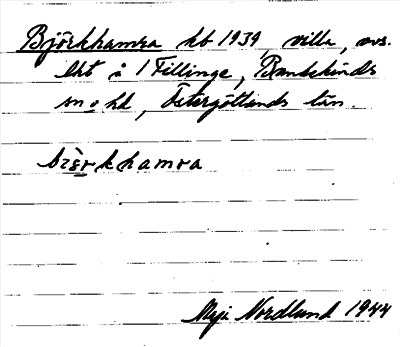 Björkhamra hb 1939, villa, avs.
lht å 1 Fillinge, Bankekinds
sn o hd, Östergötlands län.
bièrkhamra
Maja Nordlund 1944